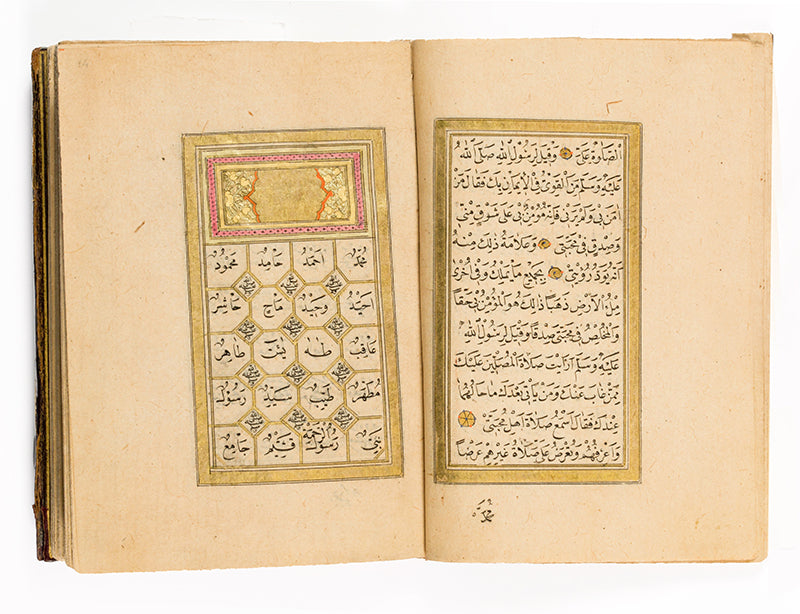 الصلوة علي وقيل لرسول الله صلى الله
عليه وسلم من القوي في الايمان بك فقال من
امن بي ولم يرني فانه مؤمن بي على شوق مني
وصدق في محبتي وعلامة ذلك منه
انه يود رؤيتي بجميع ما يملك وفي اخرى
ملء الارض ذهبا ذالك هو المؤمن بي حقا
والمخلص في محبتي صدقا وقيل لرسول الله
عليه وسلم ارايت صلاة المصلين عليك
ممن غاب عنك ومن يأتي بعدك ما حالهما
عندك فقال اسمع صلاة اهل محبتي
واعرفهم وتعرض علي صلاة غيرهم عرضا
محمد
محمد احمد حامد محمود
احيد وحيد ماح حاشر
عاقب طه يس طاهر
مطهر طيب سيد رسول
نبي رسول الرحمة قيم جامع